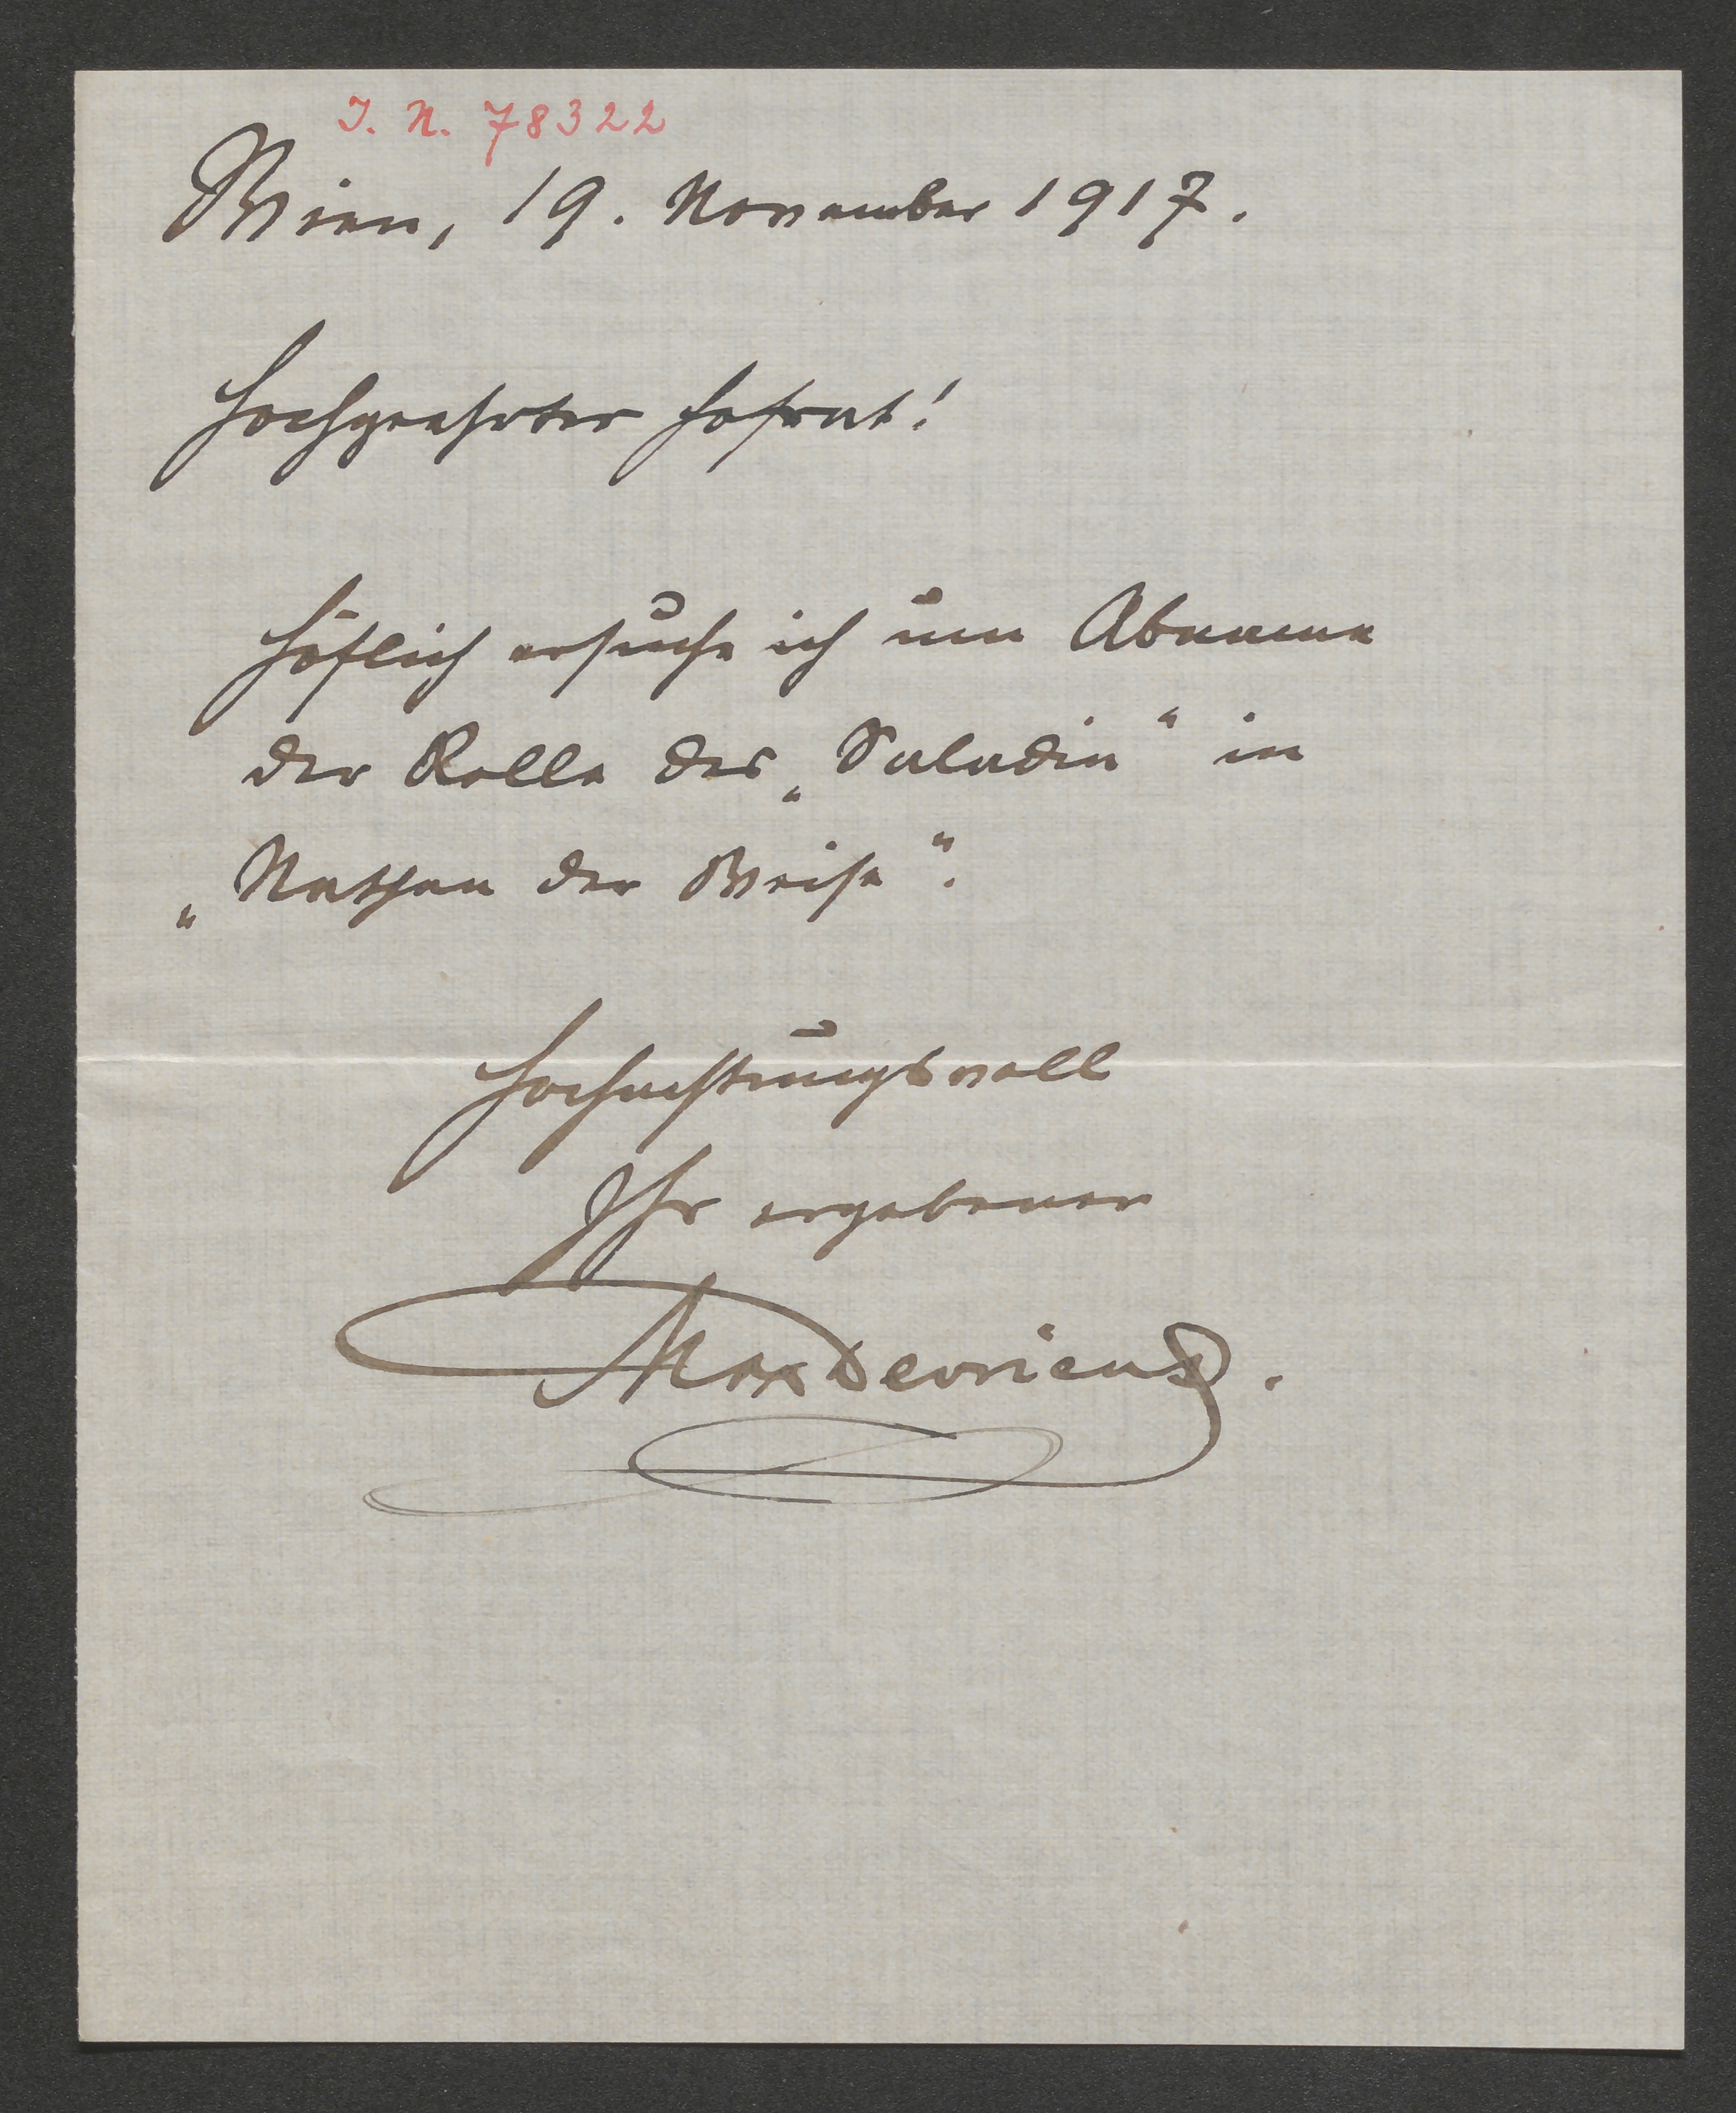 I. N. 78322
Wien, 19. November 1917.
Hochgeehrter Hofrat!
Höflich ersuche ich um Abname
der Rolle des „Saladin“ in
„Nathan der Weise“.
Hochachtungsvoll
Ihr ergebener
Max Devrient.